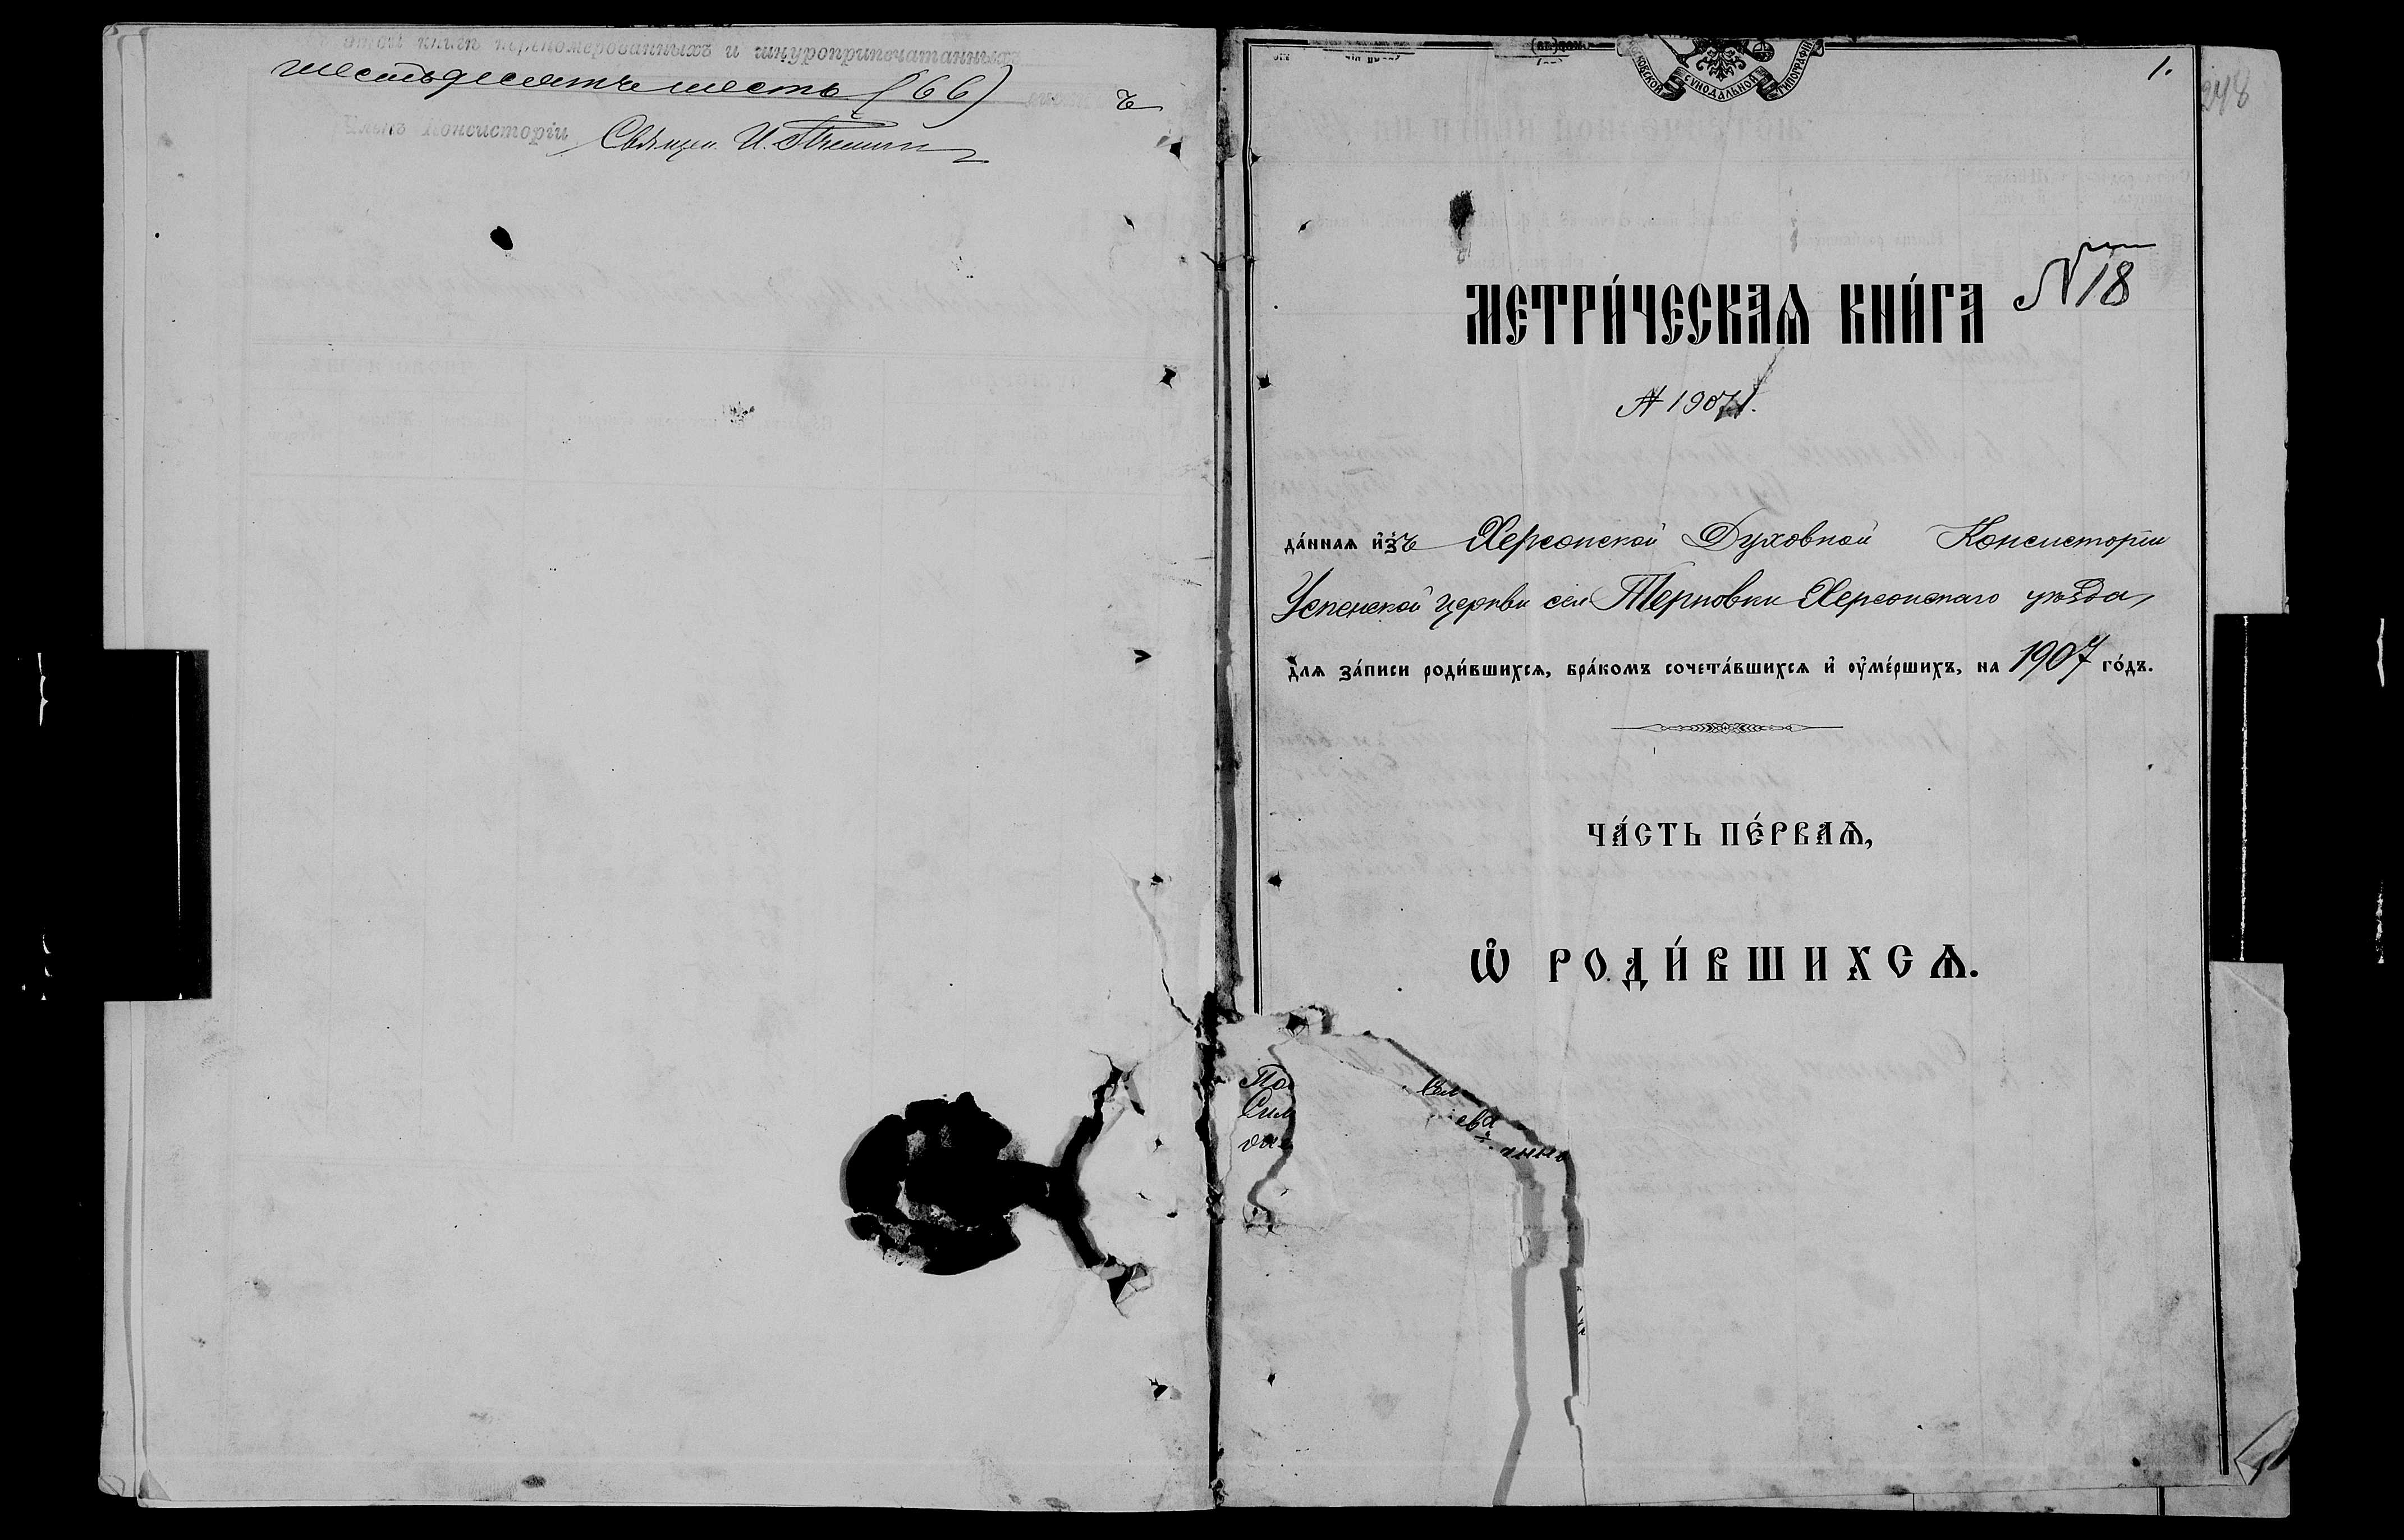 этой книги пронумерованныхъ и шнуроприпечатанныхъ
шестьдесятъ шесть (66)
Членъ Консисторіи Священ. И.
1.
248
МОСКОВСКОЙ СѴНОДАЛЬНОЙ ТИПОГРАФІИ
МЕТРИ́ЧЕСКАѦ КНИ́ГА N 18
да́ннаѧ и҆зъ Херсонской Духовной Консисторіи
Успенской церкви сел Терновки Херсонскаго уѣзда,
длѧ за́писи роди́вшихсѧ, бра́комъ сочета́вшихсѧ и҆ ѹ҆ме́ршихъ, на 1907 го́дъ.
ЧА́СТЬ ПЕ́РВАѦ,
Ѽ РОДИ́ВШИХСѦ.